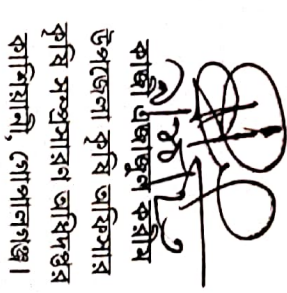 কাজী এজাজুল করীম
উপজেলা কৃষি অফিসার
কৃষি সম্প্রসারণ অধিদপ্তর
কাশিয়ানী, গোপালগঞ্জ।